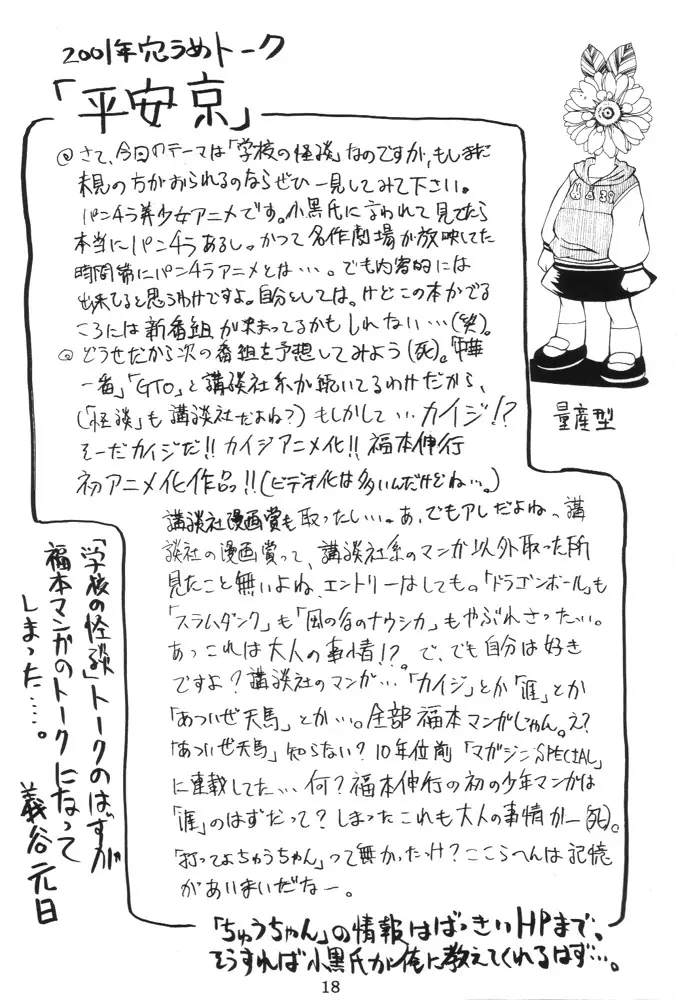 2001年穴うめトーク
「平安京」
◎さて、今回のテーマは「学校の怪談」なのですが、もしまだ
未見の方がおられるのならぜひ一見してみて下さい。
パンチラ美少女アニメです。小黒氏に言われて見てたら
本当にパンチラあるし。かつて名作劇場が放映してた
時間帯にパンチラアニメとは…。でも内容的には
出来てると思うわけですよ。自分としては。けどこの本がでる
ころには新番組が決まってるかもしれない…(笑)。
◎どうせだから次の番組を予想してみよう(死)。「中華
一番」「GTO」と講談社系が続いてるわけだから、
(「怪談」も講談社だよね?)もしかして…カイジ!?
そーだカイジだ!!カイジアニメ化!!福本伸行
初アニメ化作品っ!!(ビデオ化は多いんだけどね…。)
講談社漫画賞も取ったしぃ…。あ、でもアレだよね、講
談社の漫画賞って、講談社系のマンガ以外取った所
見たこと無いよね、エントリーはしても。「ドラゴンボール」も
「スラムダンク」も「風の谷のナウシカ」もやぶれさった…。
あっこれは大人の事情!?で、でも自分は好き
ですよ?講談社のマンガ…「カイジ」とか「涯」とか
「あついぜ天馬」とか…。全部福本マンガじゃん。え?
「あついぜ天馬」知らない?10年位前「マガジンSPECIAL」
に連載してた…何?福本伸行の初の少年マンガは
「涯」のはずだって?しまったこれも大人の事情かー(死)。
「打ってよちゅうちゃん」って無かったっけ?ここらへんは記憶
があいまいだなー。
「ちゅうちゃん」の情報はばっきぃHPまで。
そうすれば小黒氏が俺に教えてくれるはず…。
「学校の怪談」トークのはずが
福本マンガのトークになって
しまった…。
義谷元日
量産型
18